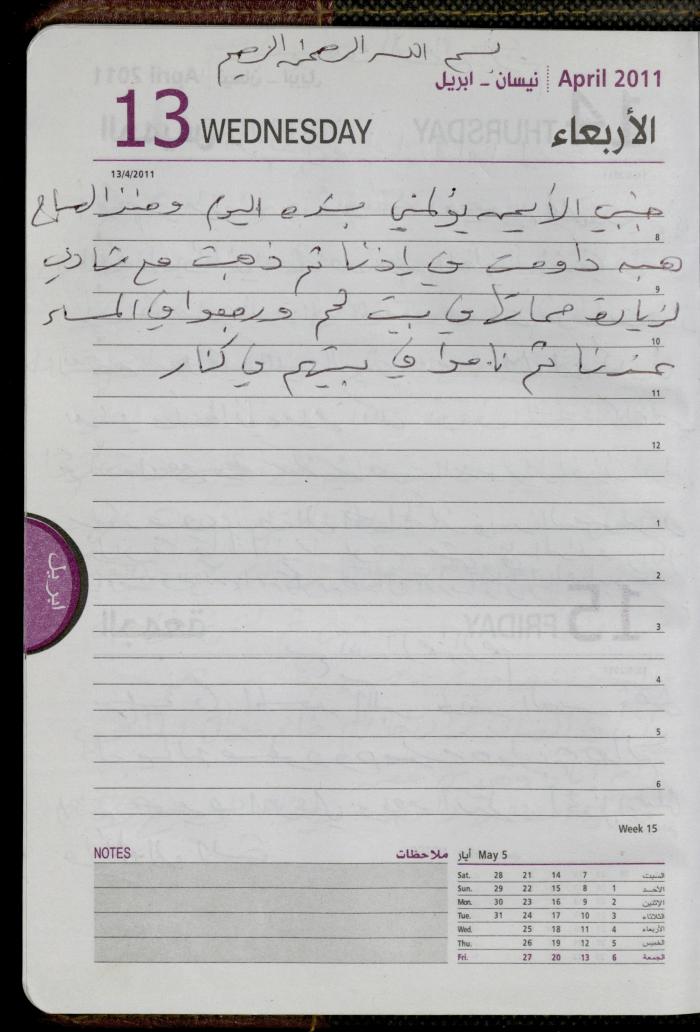 بسم الله الرحمن الرحيم
نيسان - ابريل April 2011
13 WEDNESDAY الأربعاء
13/4/2011
جنبي الأيمن يؤلمني بشده اليوم ومنذ الصباح
8
هبه داومت في إذنا ثم ذهبت مع شادي
9
لزيارة حماتها في بيت لحم ورجعوا في المساء
10
عندنا ثم ناموا في بيتهم في كنار
11
12
1
2
ابريل
3
4
5
6
Week 15
NOTES ملاحظات
أيار May 5
Sat. 28 21 14 7 السبت
Sun. 29 22 15 8 1 الأحد
Mon. 30 23 16 9 2 الإثنين
Tue. 31 24 17 10 3 الثلاثاء
Wed. 25 18 11 4 الأربعاء
Thu. 26 19 12 5 الخميس
Fri. 27 20 13 6 الجمعة